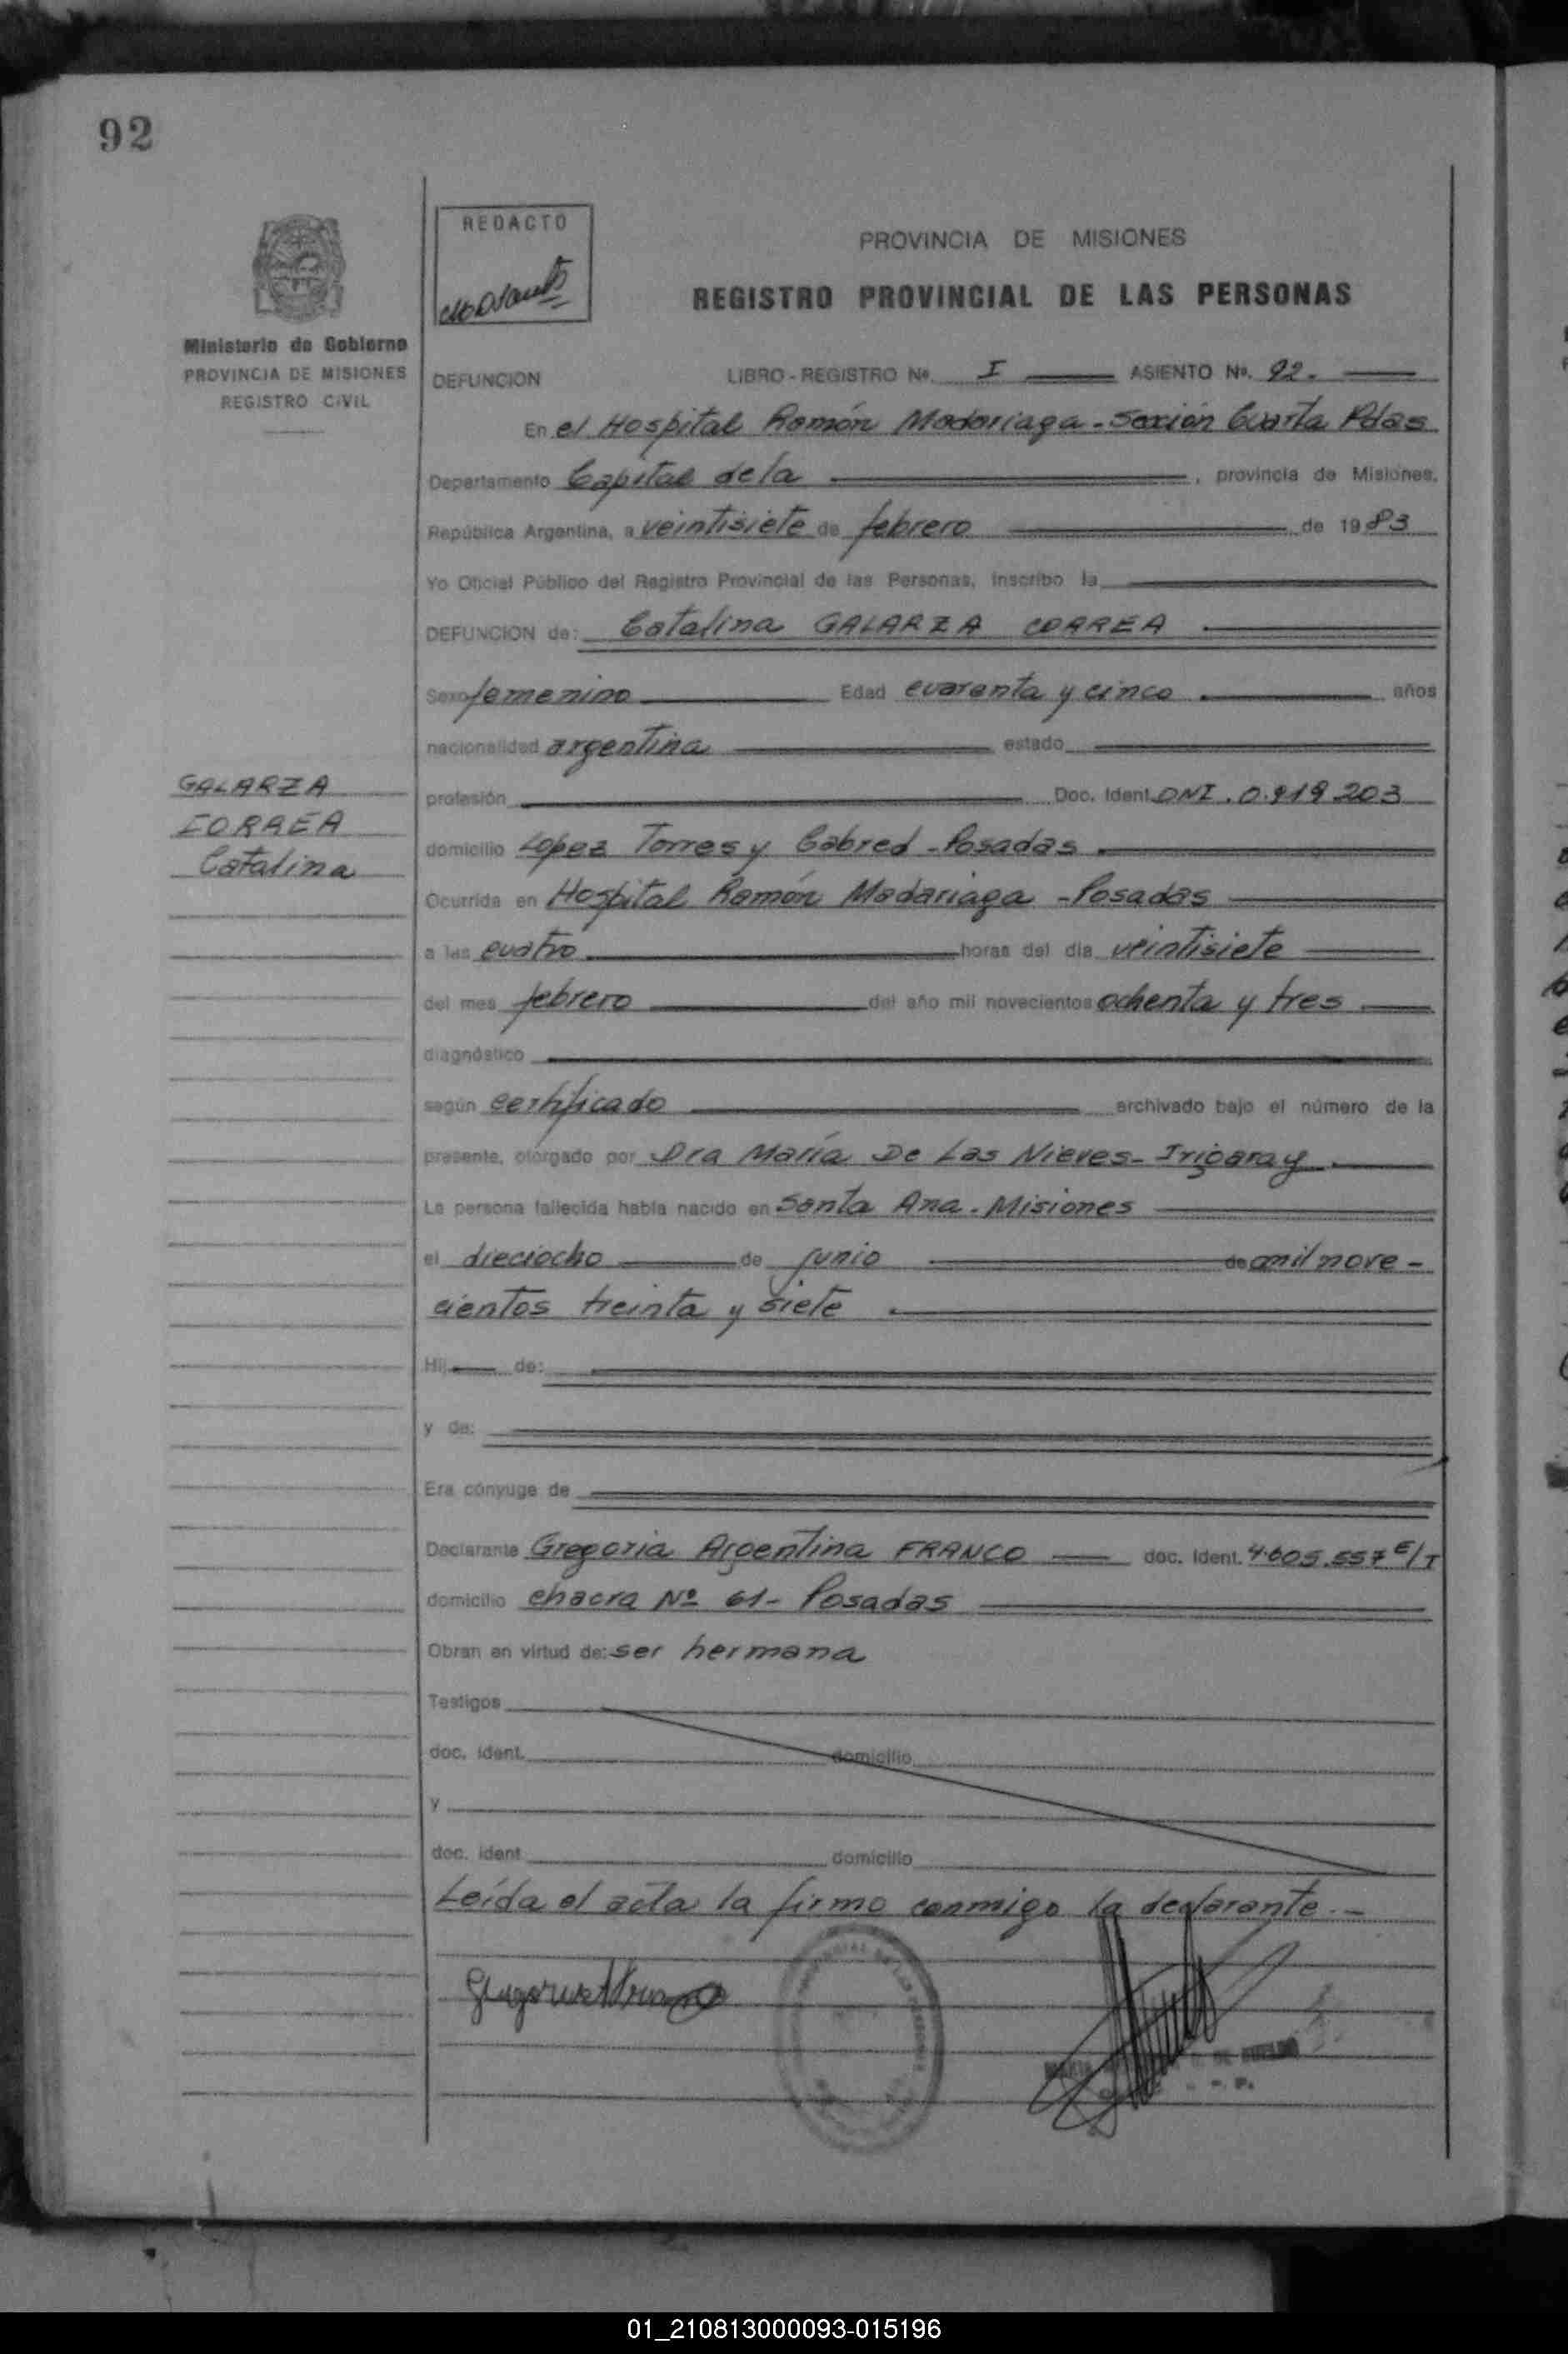 92
REDACTO
PROVINCIA DE MISIONES
REGISTRO PROVINCIAL DE LAS PERSONAS
Ministerio de Gobierno
PROVINCIA DE MISIONES
REGISTRO CIVIL
DEFUNCION LIBRO - REGISTRO Nº. I ASIENTO Nº. 92.
En el Hospital Ramón Madariaga - Sección Cuarta Pdas
Departamento Capital de la , provincia de Misiones,
República Argentina, a veintisiete de febrero de 1983
Yo Oficial Público del Registro Provincial de las Personas, inscribo la
DEFUNCION de: Catalina GALARZA CORREA
Sexo femenino Edad cuarenta y cinco años
nacionalidad argentina estado
GALARZA
CORREA
Catalina
profesión Doc. Ident. DNI. 0.919.203
domicilio Lopez Torres y Cabred - Posadas
Ocurrida en Hospital Ramón Madariaga - Posadas
a las cuatro horas del día veintisiete
del mes febrero del año mil novecientos ochenta y tres
diagnóstico
según certificado archivado bajo el número de la
presente, otorgado por Dra María De Las Nieves - Irigaray
La persona fallecida había nacido en Santa Ana - Misiones
el dieciocho de junio de mil nove-
cientos treinta y siete
Hij de:
y de:
Era cónyuge de
Declarante Gregoria Argentina FRANCO doc. ident. 4.605.557 E/T
domicilio chacra Nº 61 - Posadas
Obran en virtud de: ser hermana
Testigos
doc. ident. domicilio
y
doc. ident domicilio
Leída el acta la firmo conmigo la declarante.-
01_210813000093-015196